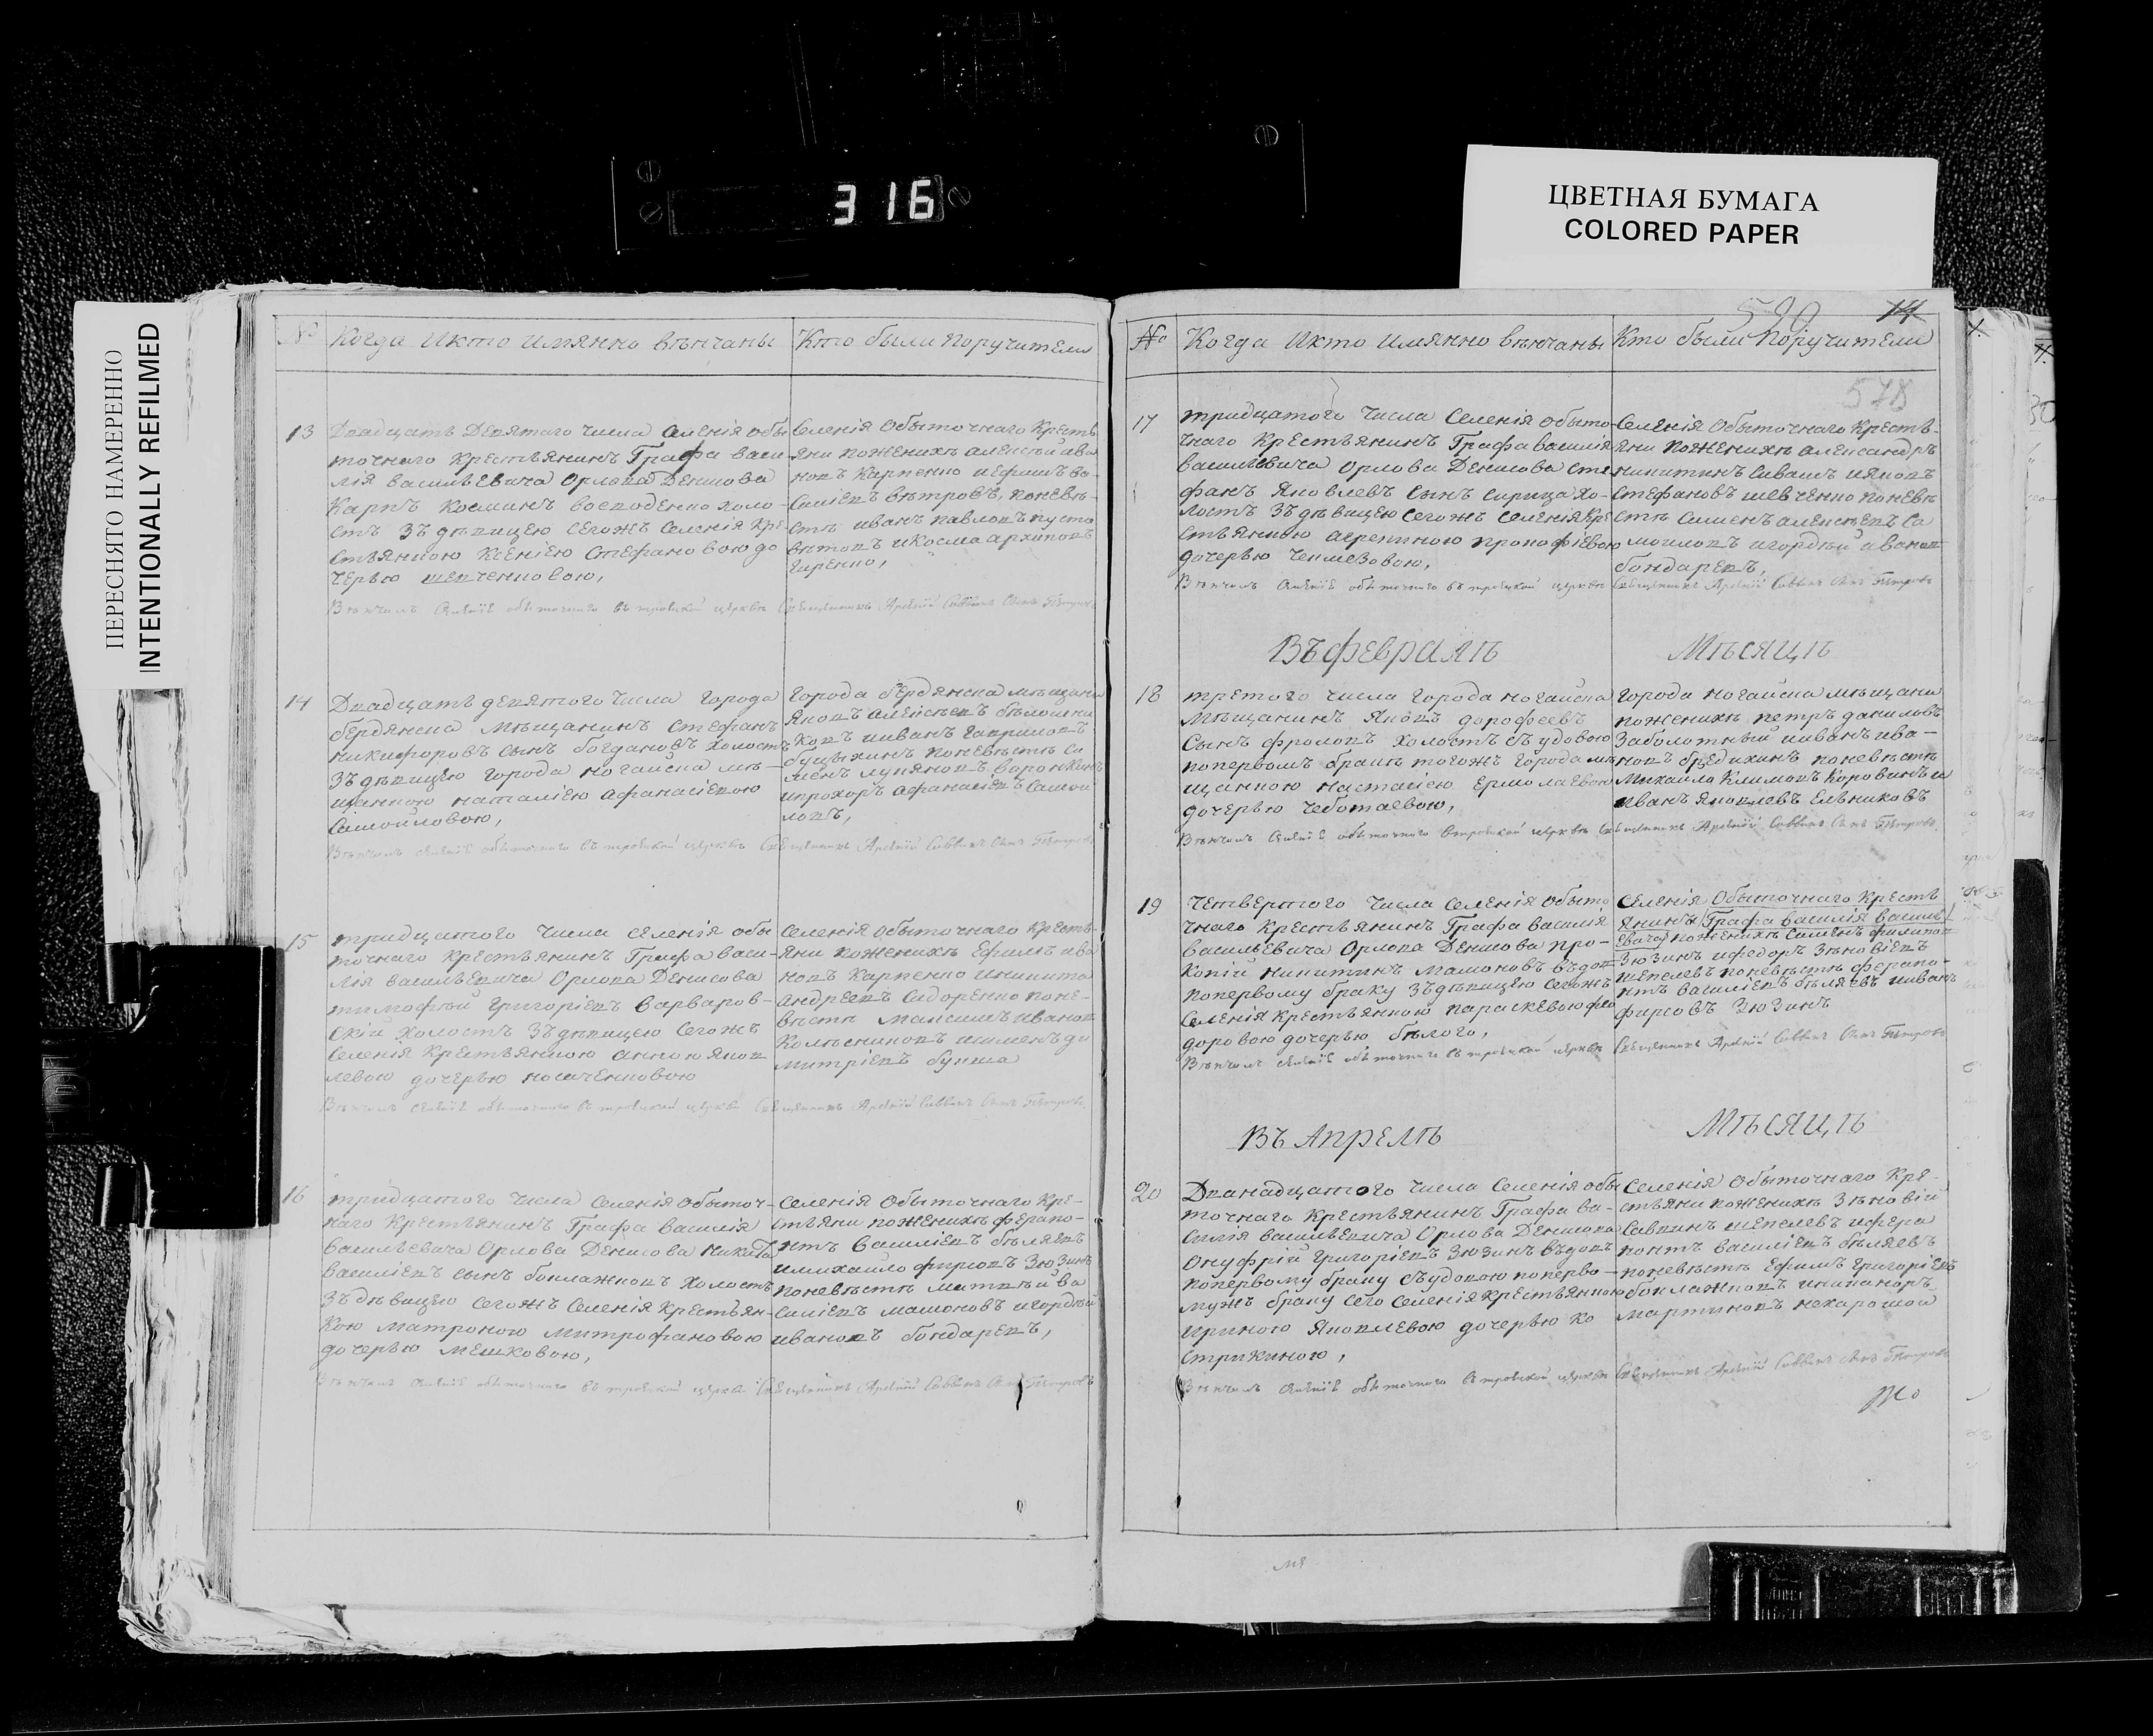 316
ЦВЕТНАЯ БУМАГА
COLORED PAPER
ПЕРЕСНЯТО НАМЕРЕННО
INTENTIONALLY REFILMED
№ Когда Икто имянно вѣнчаны
Кто были Поручители
13
Двадцать Девятаго числа Селенія Обы
точнаго Крестьянинъ Графа Васи-
лія Васильевича Орлова Денисова
Карпъ Косминъ воеводенко холо-
стъ Зъ дѣвицею Сегожъ Селенія Кре-
стьянкою Ксеніею Стефановою до
черью шевченковою,
Селенія Обыточнаго Кресть
яни поженихѣ алексѣй ива
новъ Карпенко иефимъ ва-
силіевъ вѣтровъ, поневѣ-
стѣ иванъ павловъ пусто
вѣтовъ икосма архиповъ
гиренко,
Вѣнчалъ Селенія обыточнаго въ троицкой церкви Священникъ Арсеній Саввинъ Сынъ Петровъ
14
Двадцать девятого числа города
бердянска Мѣщанинъ Стефанъ
никифоровъ сынъ богдановъ холостъ
Зъ дѣвицею города ногайска мѣ-
щанкою наталіею Афанасіевою
Самойловою,
Города бердянска мѣщани
Яковъ алексѣевъ
иванъ гавриловъ
поневѣстѣ Се
менъ лукяновъ
ипрохоръ афанасіевъ Самой
ловъ,
Вѣнчалъ Селенія обыточнаго въ троицкой церкви Священникъ Арсеній Саввинъ Сынъ Петровъ
15
тридцатого числа селенія обы
точнаго крестьянинъ Графа васи-
лія васильевича Орлова Денисова
тимофѣй григоріевъ варваров-
скій холостъ Зъдѣвицею сегожъ
селенія крестьянкою анною яков
левою дочерью носаченковою
селенія обыточнаго кресть-
яни поженихѣ Ефимъ ива
новъ Карпенко иникита
андреевъ Сидоренко поне-
вѣстѣ максимъ иванов
Колѣсниковъ исименъ ди
митріевъ бунша
Вѣнчалъ Селенія обыточнаго въ троицкой церкви Священникъ Арсеній Саввинъ Сынъ Петровъ
16
тридцатого числа Селенія обыточ-
наго Крестьянинъ Графа василія
васильевича Орлова Денисова Никита
василіевъ сынъ баклажковъ холостъ
Зъ дѣвицею сегожъ Селенія крестьян-
кою матроною митрофановою
дочерью мешковою,
селенія Обыточнаго Кре-
стьяни поженихѣ ферапо-
нтъ василіевъ бѣляевъ
имихайло фирсовъ Зюзинъ
поневѣстѣ матвѣй ва
силіевъ машоновъ игордѣй
ивановъ бондаревъ,
Вѣнчалъ Селенія обыточнаго въ троицкой церкви Священникъ Арсеній Саввинъ Сынъ Петровъ
590 14
№ Когда Икто Имянно вѣнчаны
Кто были Поручители
578
17
тридцатого числа Селенія обыто-
чнаго Крестьянинъ Графа василія
васильевича Орлова Денисова Сте
фанъ Яковлевъ сынъ сирица хо-
лостъ Зъдѣвицею Сегожъ Селенія Кре
стьянкою агрепиною прокофіевою
дочерью чешмезовою,
Селенія Обыточнаго Кресть-
яни поженихѣ александръ
никитинъ Сивашъ ияковъ
Стефановъ шевченко поневѣ
стѣ Сименъ алексѣевъ Са
моиловъ игордѣй иванов
бондаревъ,
Вѣнчалъ Селенія обыточнаго въ троицкой церкви Священникъ Арсеній Саввинъ Сынъ Петровъ
Въ февралѣ
Мѣсяцѣ
18
третого числа города ногайска
мѣщанинъ Яковъ дорофеевъ
Сынъ фроловъ холостъ съ удовою
попервомъ бракѣ тогожъ города мѣ
щанкою Настасіею Ермолаевою
дочерью чеботаевою,
города ногайска мѣщани
поженихѣ петръ даниловъ
Заболотный ииванъ ива-
новъ бредихинъ поневѣстѣ
Михаила Климовъ Коровинъ и
иванъ Яковлевъ Ельниковъ
Вѣнчалъ Селенія обыточнаго втроицкой церкви Священникъ Арсеній Саввинъ Сынъ Петровъ
19
Четвертого числа Селенія обыто
чнаго крестьянинъ Графа василія
васильевича Орлова Денисова про-
копій никитинъ машоновъ въдов
попервому браку Зъдѣвицею сегожъ
селенія крестьянкою параскевою фео
доровою дочерью бѣлого,
Селенія Обыточнаго Кресть
янинъ Графа василія василь-
евича поженихѣ Сименъ филипов
Зюзинъ ифедоръ Зѣновіевъ
шепелевъ поневѣстѣ ферапо-
нтъ василіевъ бѣляевъ ииванъ
фирсовъ Зюзинъ
Вѣнчалъ Селенія обыточнаго въ троицкой церкви Священникъ Арсеній Саввинъ Сынъ Петровъ
Въ Апрелѣ
Мѣсяцѣ
20
Дванадцатого числа Селенія обы
точнаго Крестьянинъ Графа ва-
силія васильевича Орлова Денисова
Онуфрій григоріевъ Зюзинъ въдовъ
попервому браку съудовою поперво-
мужъ браку сего Селенія крестьянкою
ириною Яковлевою дочерью ко
стрикиною,
Селенія Обыточнаго Кре-
стьяни поженихѣ Зѣновій
Саввинъ шепелевъ ифера
понтъ василіевъ бѣляевъ
поневѣстѣ Ефимъ григоріевъ
баклажковъ иниканоръ
мартиновъ нехарошой
Вѣнчалъ Селенія обыточнаго въ троицкой церкви Священникъ Арсеній Саввинъ Сынъ Петровъ